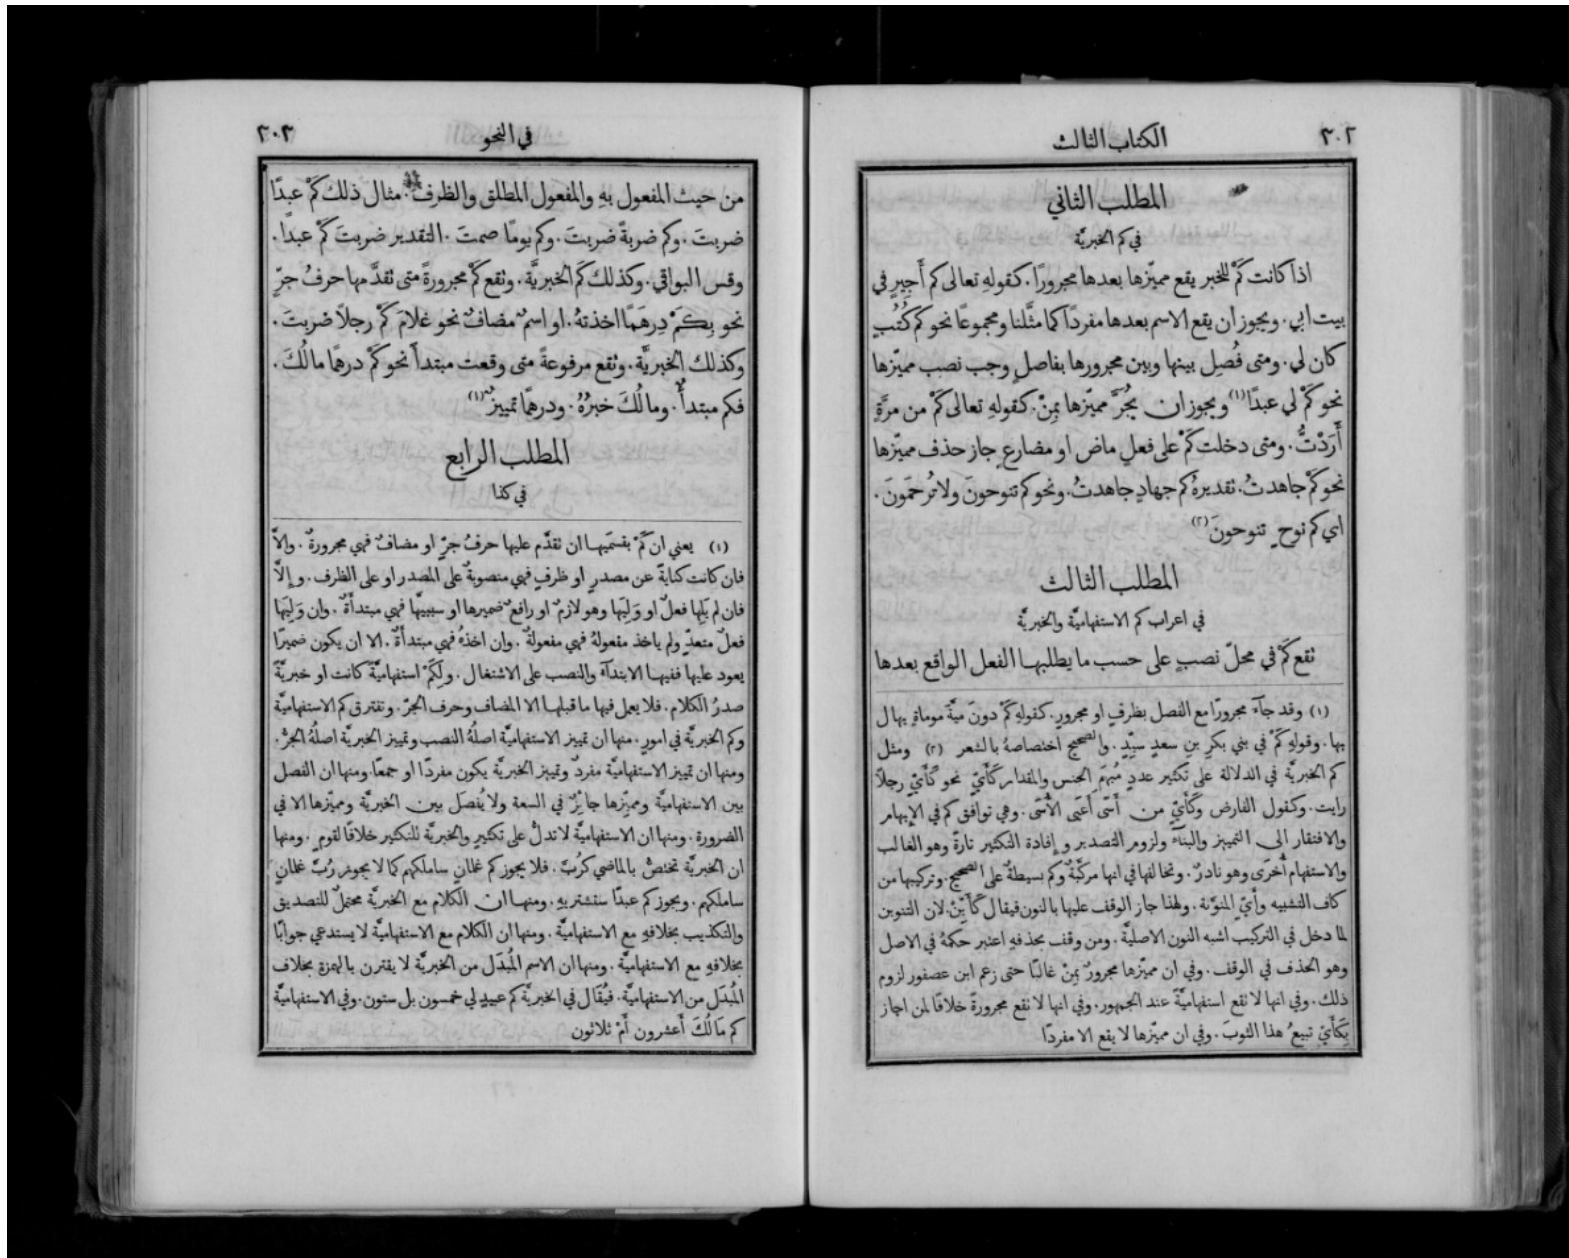 ٣٠٢
الكتاب الثالث
المطلب الثاني
في كم الخبريَّة
اذا كانت كَمْ للخبر يقع مميّزها بعدها مجرورًا. كقولهِ تعالى كم أَجِيرٍ في
بيت ابي. ويجوز ان يقع الاسم بعدها مفردًا كما مثَّلنا ومجموعًا نحو كم كُتُبٍ
كان لي. ومتى فُصِل بينها وبين مجرورها بفاصلٍ وجب نصب مميّزها
نحو كَمْ لي عبدًا(١) ويجوز ان يُجَرَّ مميّزها بِمِنْ. كقولهِ تعالى كَمْ من مرَّةٍ
أَرَدْتُ. ومتى دخلت كَمْ على فعلٍ ماضٍ او مضارعٍ جاز حذف مميّزها
نحو كَمْ جاهدتُ. تقديرهُ كم جهادٍ جاهدتُ. ونحو كم تنوحونَ ولا تُرحَمَونَ.
اي كم نوحٍ تنوحونَ(٢)
المطلب الثالث
في اعراب كم الاستفهاميَّة والخبريَّة
تقع كَمْ في محلّ نصبٍ على حسب ما يطلبهـا الفعل الواقع بعدها
(١) وقد جآءَ مجرورًا مع الفصل بظرفٍ او مجرورٍ. كقولهِ كَمْ دونَ ميَّةَ موماةٍ يهال
بها. وقولهِ كَمْ في بني بكرِ بنِ سعدٍ سيّدٍ. والصحيح اختصاصهُ بالشعر (٢) ومثل
كم الخبريَّة في الدلالة على تكثير عددٍ مُبهَم الجنس والمقدار كَأَيّ نحو كَأَيّ رجلًا
رايت. وكقول الفارض وكَأَيّ من أَسًى أَعيَى الأُسَى. وهي توافق كم في الإبهام
والافتقار الى التمييز والبنآءِ ولزوم التصدير وإفادة التكثير تارةً وهو الغالب
والاستفهام أُخرَى وهو نادرٌ. وتخالفها في انها مركَّبةٌ وكم بسيطةٌ على الصحيح. وتركيبها من
كاف التشبيه وأيّ المنوَّنة. ولهذا جاز الوقف عليها بالنون فيقال كَأَيّنْ. لان التنوين
لما دخل في التركيب اشبه النون الاصليَّة. ومن وقف بحذفهِ اعتبر حكمهُ في الاصل
وهو الحذف في الوقف. وفي ان مميّزها مجرورٌ بِمِنْ غالبًا حتى زعم ابن عصفور لزوم
ذلك. وفي انها لا تقع استفهاميَّةً عند الجمهور. وفي انها لا تقع مجرورةً خلافًا لمن اجاز
بِكَأَيّ تبيعُ هذا الثوبَ. وفي ان مميّزها لا يقع الا مفردًا
في النحو
٣٠٣
من حيث المفعول بهِ والمفعول المطلق والظرف. مثال ذلك كَمْ عبدًا
ضربتَ. وكم ضربةً ضربتَ. وكم يومًا صمتَ. التقدير ضربتَ كَمْ عبدًا.
وقس البواقي. وكذلك كَم الخبريَّة. وتقع كَمْ مجرورةً متى تقدَّمها حرفُ جرٍّ
نحو بِكَمْ دِرهَمًا اخذتهُ. او اسمٌ مضافٌ نحو غلامَ كَمْ رجلًا ضربتَ.
وكذلك الخبريَّة. وتقع مرفوعةً متى وقعت مبتدأً نحو كَمْ درهمًا مالُكَ.
فكم مبتدأٌ. ومالُكَ خبرُهُ. ودرهمًا تمييزٌ(١)
المطلب الرابع
في كذا
(١) يعني ان كَمْ بقسمَيهـا ان تقدَّم عليها حرفُ جرٍّ او مضافٌ فهي مجرورةٌ. والَّا
فان كانت كنايةً عن مصدرٍ او ظرفٍ فهي منصوبةٌ على المصدر او على الظرف. وإلَّا
فان لم يَلِها فعلٌ او وَلِيَها وهو لازمٌ او رافعٌ ضميرها او سببيَّها فهي مبتدأَةٌ. وان وَلِيَها
فعلٌ متعدٍّ ولم ياخذ مفعولهُ فهي مفعولةٌ. وان اخذهُ فهي مبتدأَةٌ. الا ان يكون ضميرًا
يعود عليها ففيهـا الابتدآءُ والنصب على الاشتغال. ولِكَمْ استفهاميَّةً كانت او خبريَّةً
صدرُ الكلام. فلا يعمل فيها ما قبلهـا الا المضاف وحرف الجرّ. وتفترق كم الاستفهاميَّة
وكم الخبريَّة في امورٍ. منها ان تمييز الاستفهاميَّة اصلهُ النصب وتمييز الخبريَّة اصلهُ الجرُّ.
ومنها ان تمييز الاستفهاميَّة مفردٌ وتمييز الخبريَّة يكون مفردًا او جمعًا. ومنها ان الفصل
بين الاستفهاميَّة ومميّزها جايزٌ في السعة ولا يُفصَل بين الخبريَّة ومميّزها الا في
الضرورة. ومنها ان الاستفهاميَّة لا تدلُّ على تكثيرٍ والخبريَّة للتكثير خلافًا لقومٍ. ومنها
ان الخبريَّة تختصُّ بالماضي كرُبَّ. فلا يجوز كم غلمانٍ ساملكهم كما لا يجوز رُبَّ غلمانٍ
ساملكهم. ويجوز كم عبدًا ستشتريهِ. ومنهـا ان الكلام مع الخبريَّة محتملٌ للتصديق
والتكذيب بخلافهِ مع الاستفهاميَّة. ومنها ان الكلام مع الاستفهاميَّة لا يستدعي جوابًا
بخلافهِ مع الاستفهاميَّة. ومنها ان الاسم المُبدَل من الخبريَّة لا يقترن بالهمزة بخلاف
المُبدَل من الاستفهاميَّة. فيُقَال في الخبريَّة كم عبيدٍ لي خمسون بل ستون. وفي الاستفهاميَّة
كم مَالُكَ أَعشرون أَمْ ثلاثون